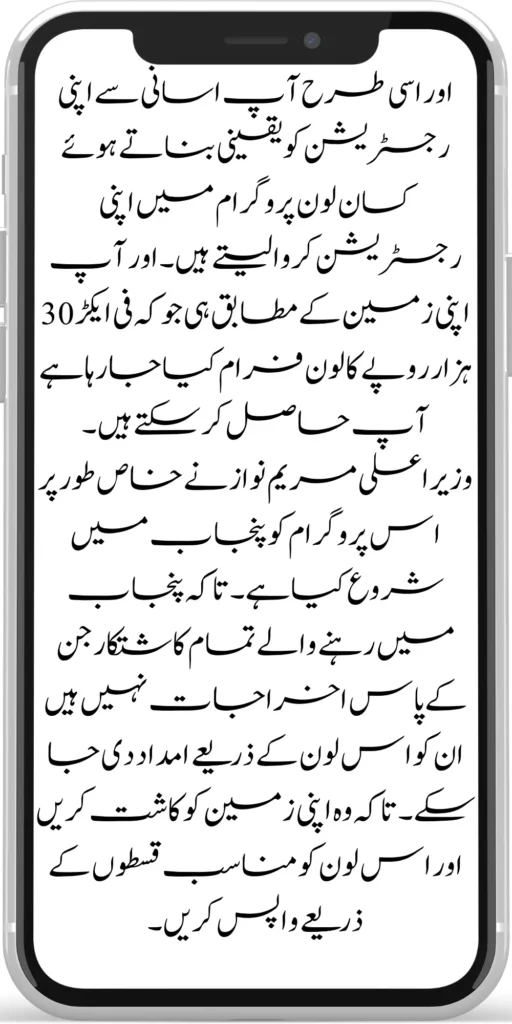 اور اسی طرح آپ اسانی سے اپنی
رجسٹریشن کو یقینی بناتے ہوئے
کسان لون پروگرام میں اپنی
رجسٹریشن کروا لیتے ہیں۔ اور آپ
اپنی زمین کے مطابق ہی جو کہ فی ایکڑ 30
ہزار روپے کا لون فرام کیا جا رہا ہے
آپ حاصل کر سکتے ہیں۔
وزیر اعلی مریم نواز نے خاص طور پر
اس پروگرام کو پنجاب میں
شروع کیا ہے۔ تاکہ پنجاب
میں رہنے والے تمام کاشتکار جن
کے پاس اخراجات نہیں ہیں
ان کو اس لون کے ذریعے امداد دی جا
سکے۔ تاکہ وہ اپنی زمین کو کاشت کریں
اور اس لون کو مناسب قسطوں کے
ذریعے واپس کریں۔